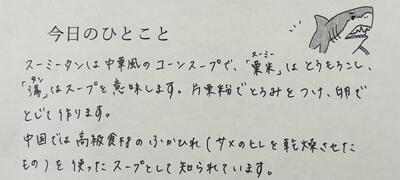 今日のひとこと
スーミータンは中華風のコーンスープで、「粟米」はとうもろこし、
スーミー
「湯」はスープを意味します。片栗粉でとろみをつけ、卵で
タン
とじて作ります。
中国では高級食材のふかひれ(サメのヒレを乾燥させた
もの)を使ったスープとして知られています。